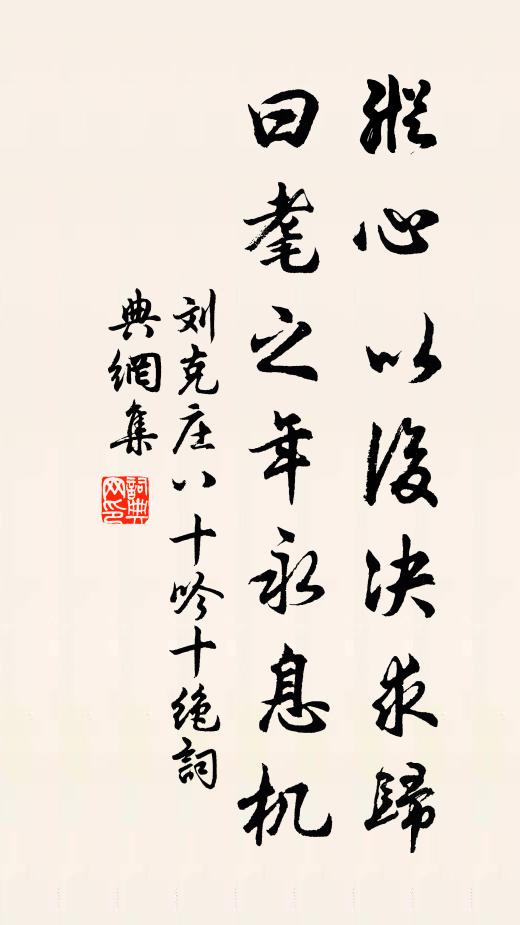 縱心以後决求歸
曰耄之年永息机
刘克庄八十吟十绝詞
典網集
詞典
网印